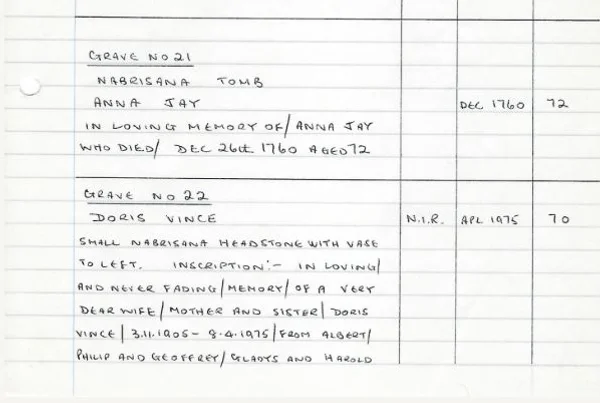 GRAVE NO 21
NABRISANA TOMB
ANNA JAY DEC 1760 72
IN LOVING MEMORY OF/ ANNA JAY
WHO DIED/ DEC 26th 1760 AGED 72
GRAVE NO 22
DORIS VINCE N.I.R. APL 1975 70
SMALL NABRISANA HEADSTONE WITH VASE
TO LEFT. INSCRIPTION:- IN LOVING/
AND NEVER FADING/MEMORY/OF A VERY
DEAR WIFE/MOTHER AND SISTER/DORIS
VINCE/3.11.1905- 8.4.1975/FROM ALBERT/
PHILIP AND GEOFFREY/GLADYS AND HAROLD